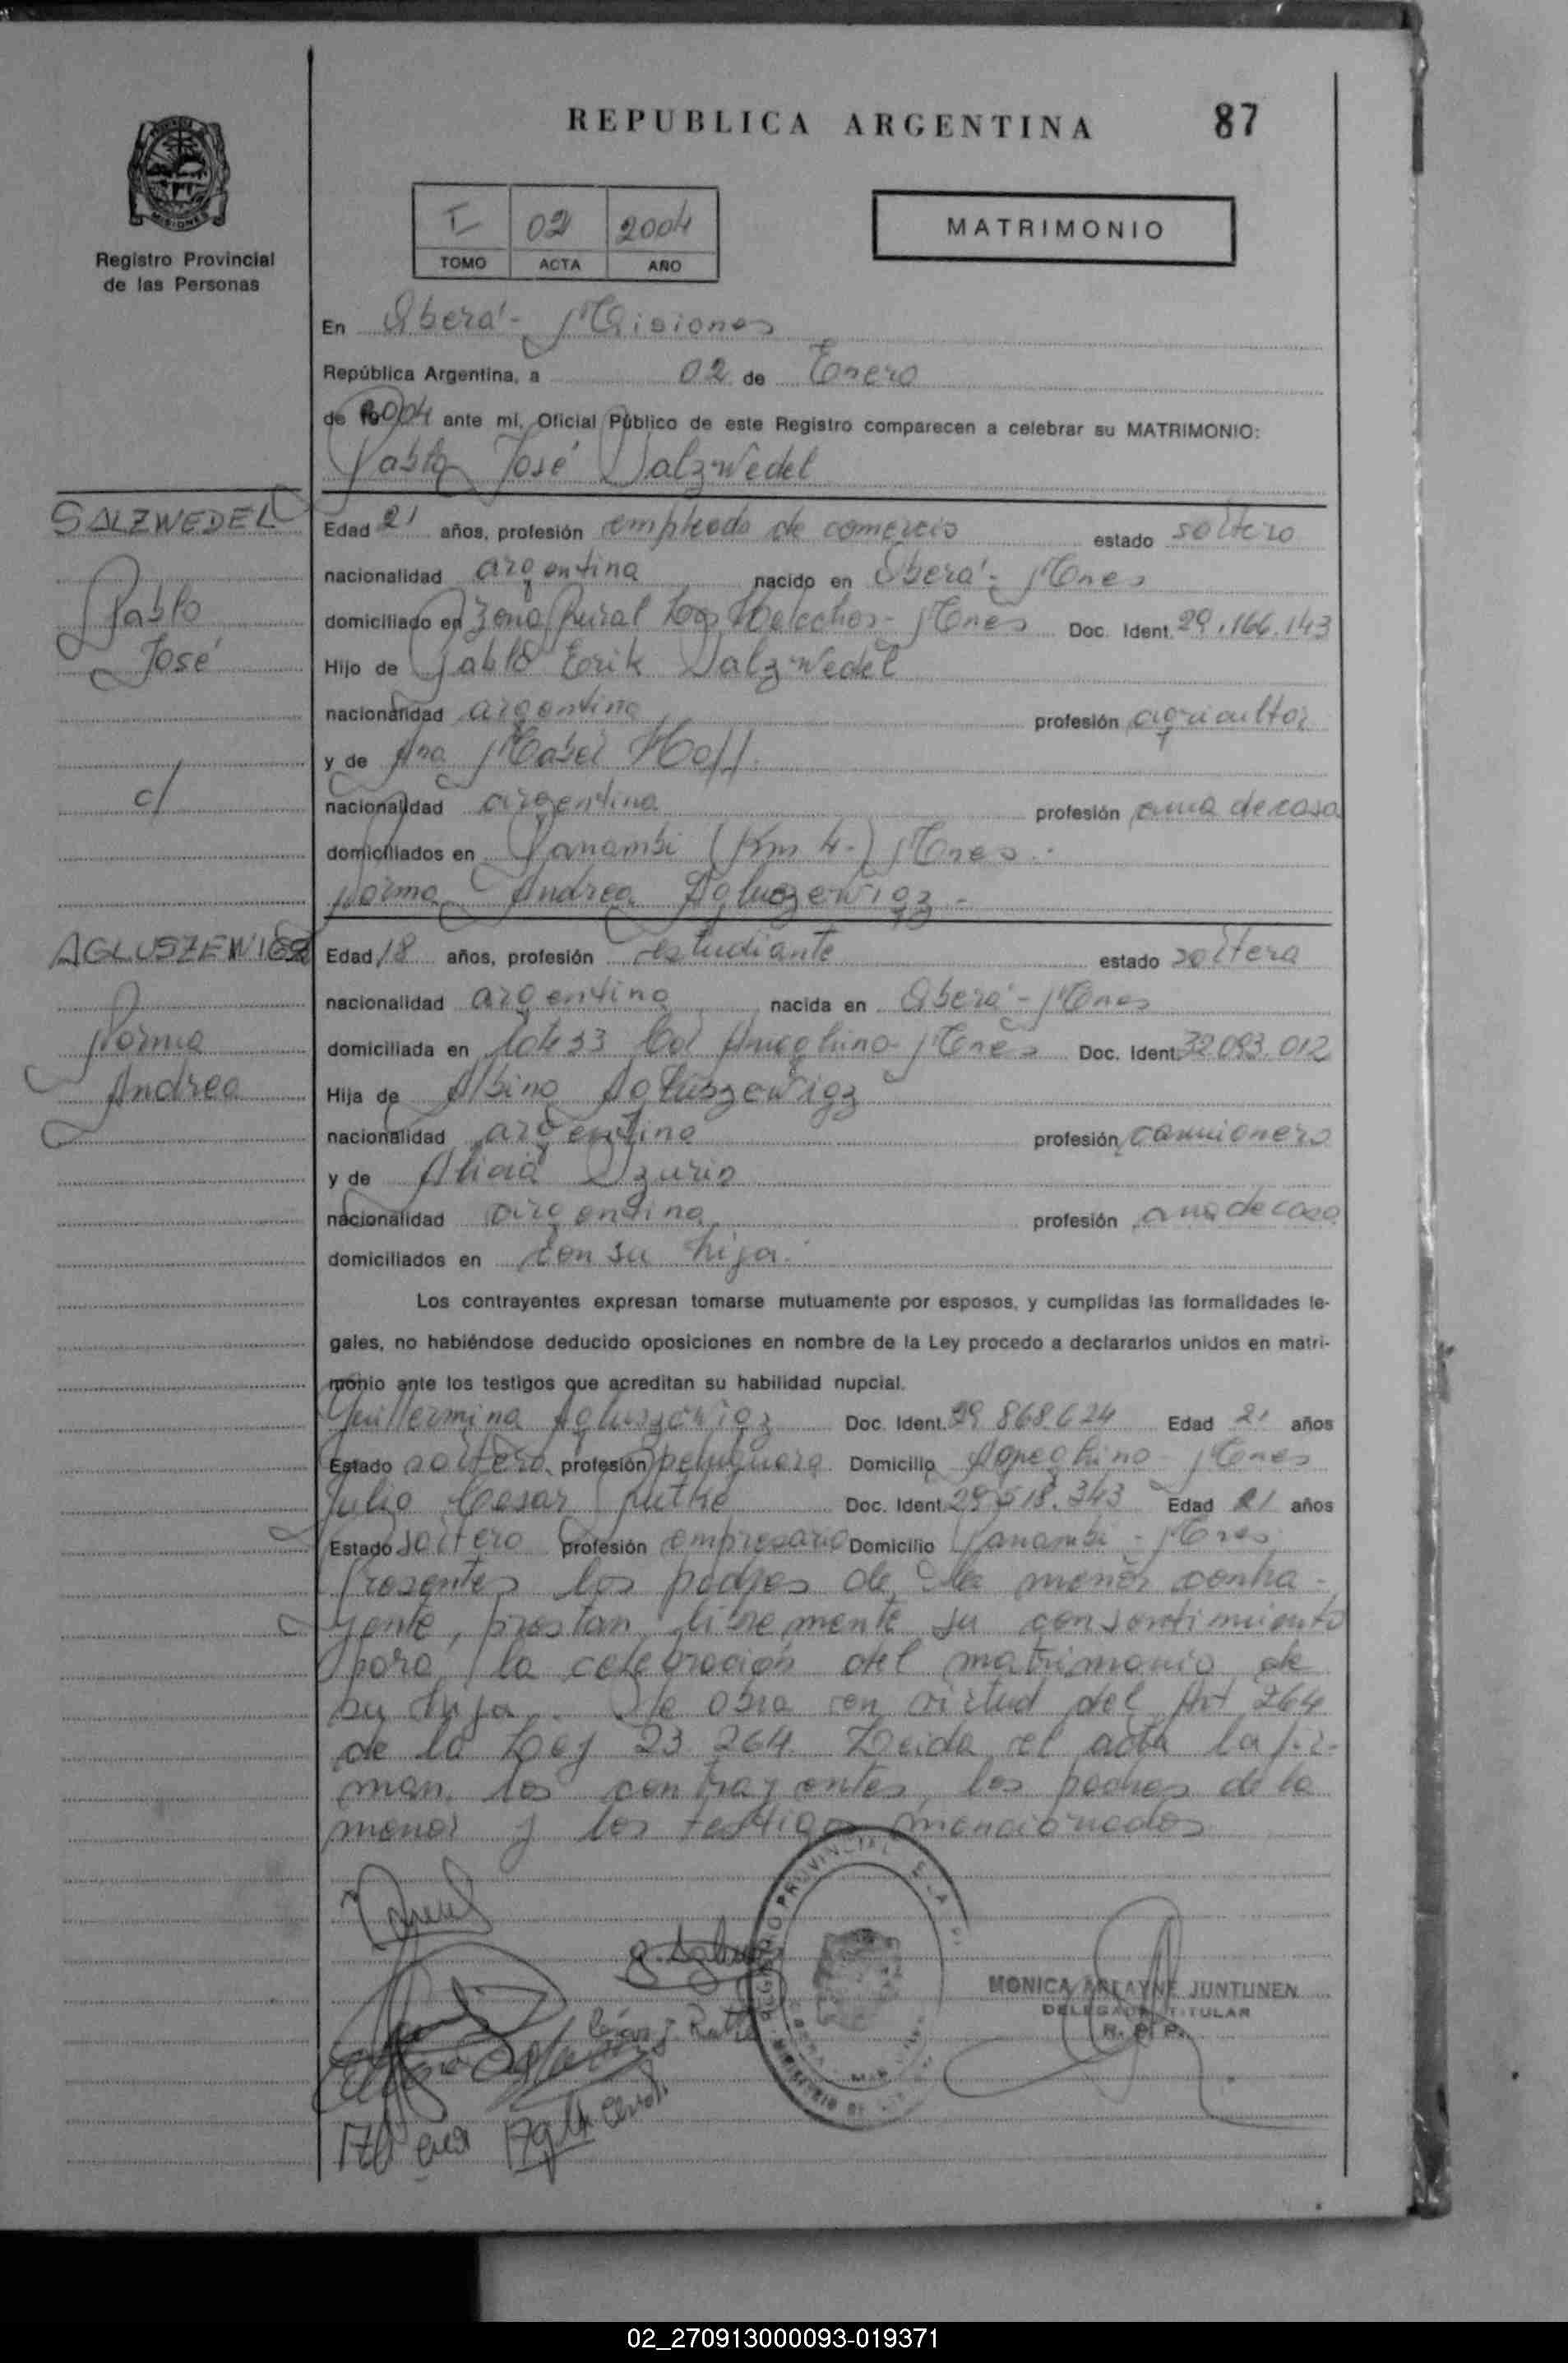 REPUBLICA ARGENTINA
87
MISIONES
Registro Provincial
de las Personas
I 02 2004
TOMO ACTA AÑO
MATRIMONIO
En Oberá - Misiones
República Argentina, a 02 de Enero
de 2004 ante mí, Oficial Público de este Registro comparecen a celebrar su MATRIMONIO:
Pablo José Salzwedel
SALZWEDEL
Pablo
José
c/
AGLUSZEWIGZ
Norma
Andrea
Edad 21 años, profesión empleado de comercio estado soltero
nacionalidad argentina nacido en Oberá - Mnes
domiciliado en Zona Rural Los Helechos - Mnes Doc. Ident. 29.166.143
Hijo de Pablo Erik Salzwedel
nacionalidad argentina profesión agricultor
y de Ana Mabel Hoff.
nacionalidad argentina profesión ama de casa
domiciliados en Panambi (Km 4.) Mnes.
Norma Andrea Agluszewigz -
Edad 18 años, profesión estudiante estado soltera
nacionalidad argentina nacida en Oberá - Mnes
domiciliada en Lote 33 Col Ameghino - Mnes Doc. Ident. 32.093.012
Hija de Albino Agluszewigz
nacionalidad argentina profesión camionero
y de Alicia
nacionalidad argentina profesión ama de casa
domiciliados en con su hija.
Los contrayentes expresan tomarse mutuamente por esposos, y cumplidas las formalidades le-
gales, no habiéndose deducido oposiciones en nombre de la Ley procedo a declararlos unidos en matri-
monio ante los testigos que acreditan su habilidad nupcial.
Guillermina Agluszewigz Doc. Ident. 29.868.624 Edad 21 años
Estado soltera profesión peluquera Domicilio Ameghino - Mnes
Julio Cesar Doc. Ident. 29.518.343 Edad 21 años
Estado soltero profesión empresario Domicilio Panambi - Mnes
Presentes los padres de la menor contra-
yente, prestan libremente su consentimiento
para la celebración del matrimonio de
su hija. Se obra en virtud del Art 264
de la Ley 23.264. Leida el acta la fir-
man los contrayentes, los padres de la
menor y los testigos mencionados
MONICA ARLAYNE JUNTUNEN
DELEGADA TITULAR
R. P. P.
02_270913000093-019371